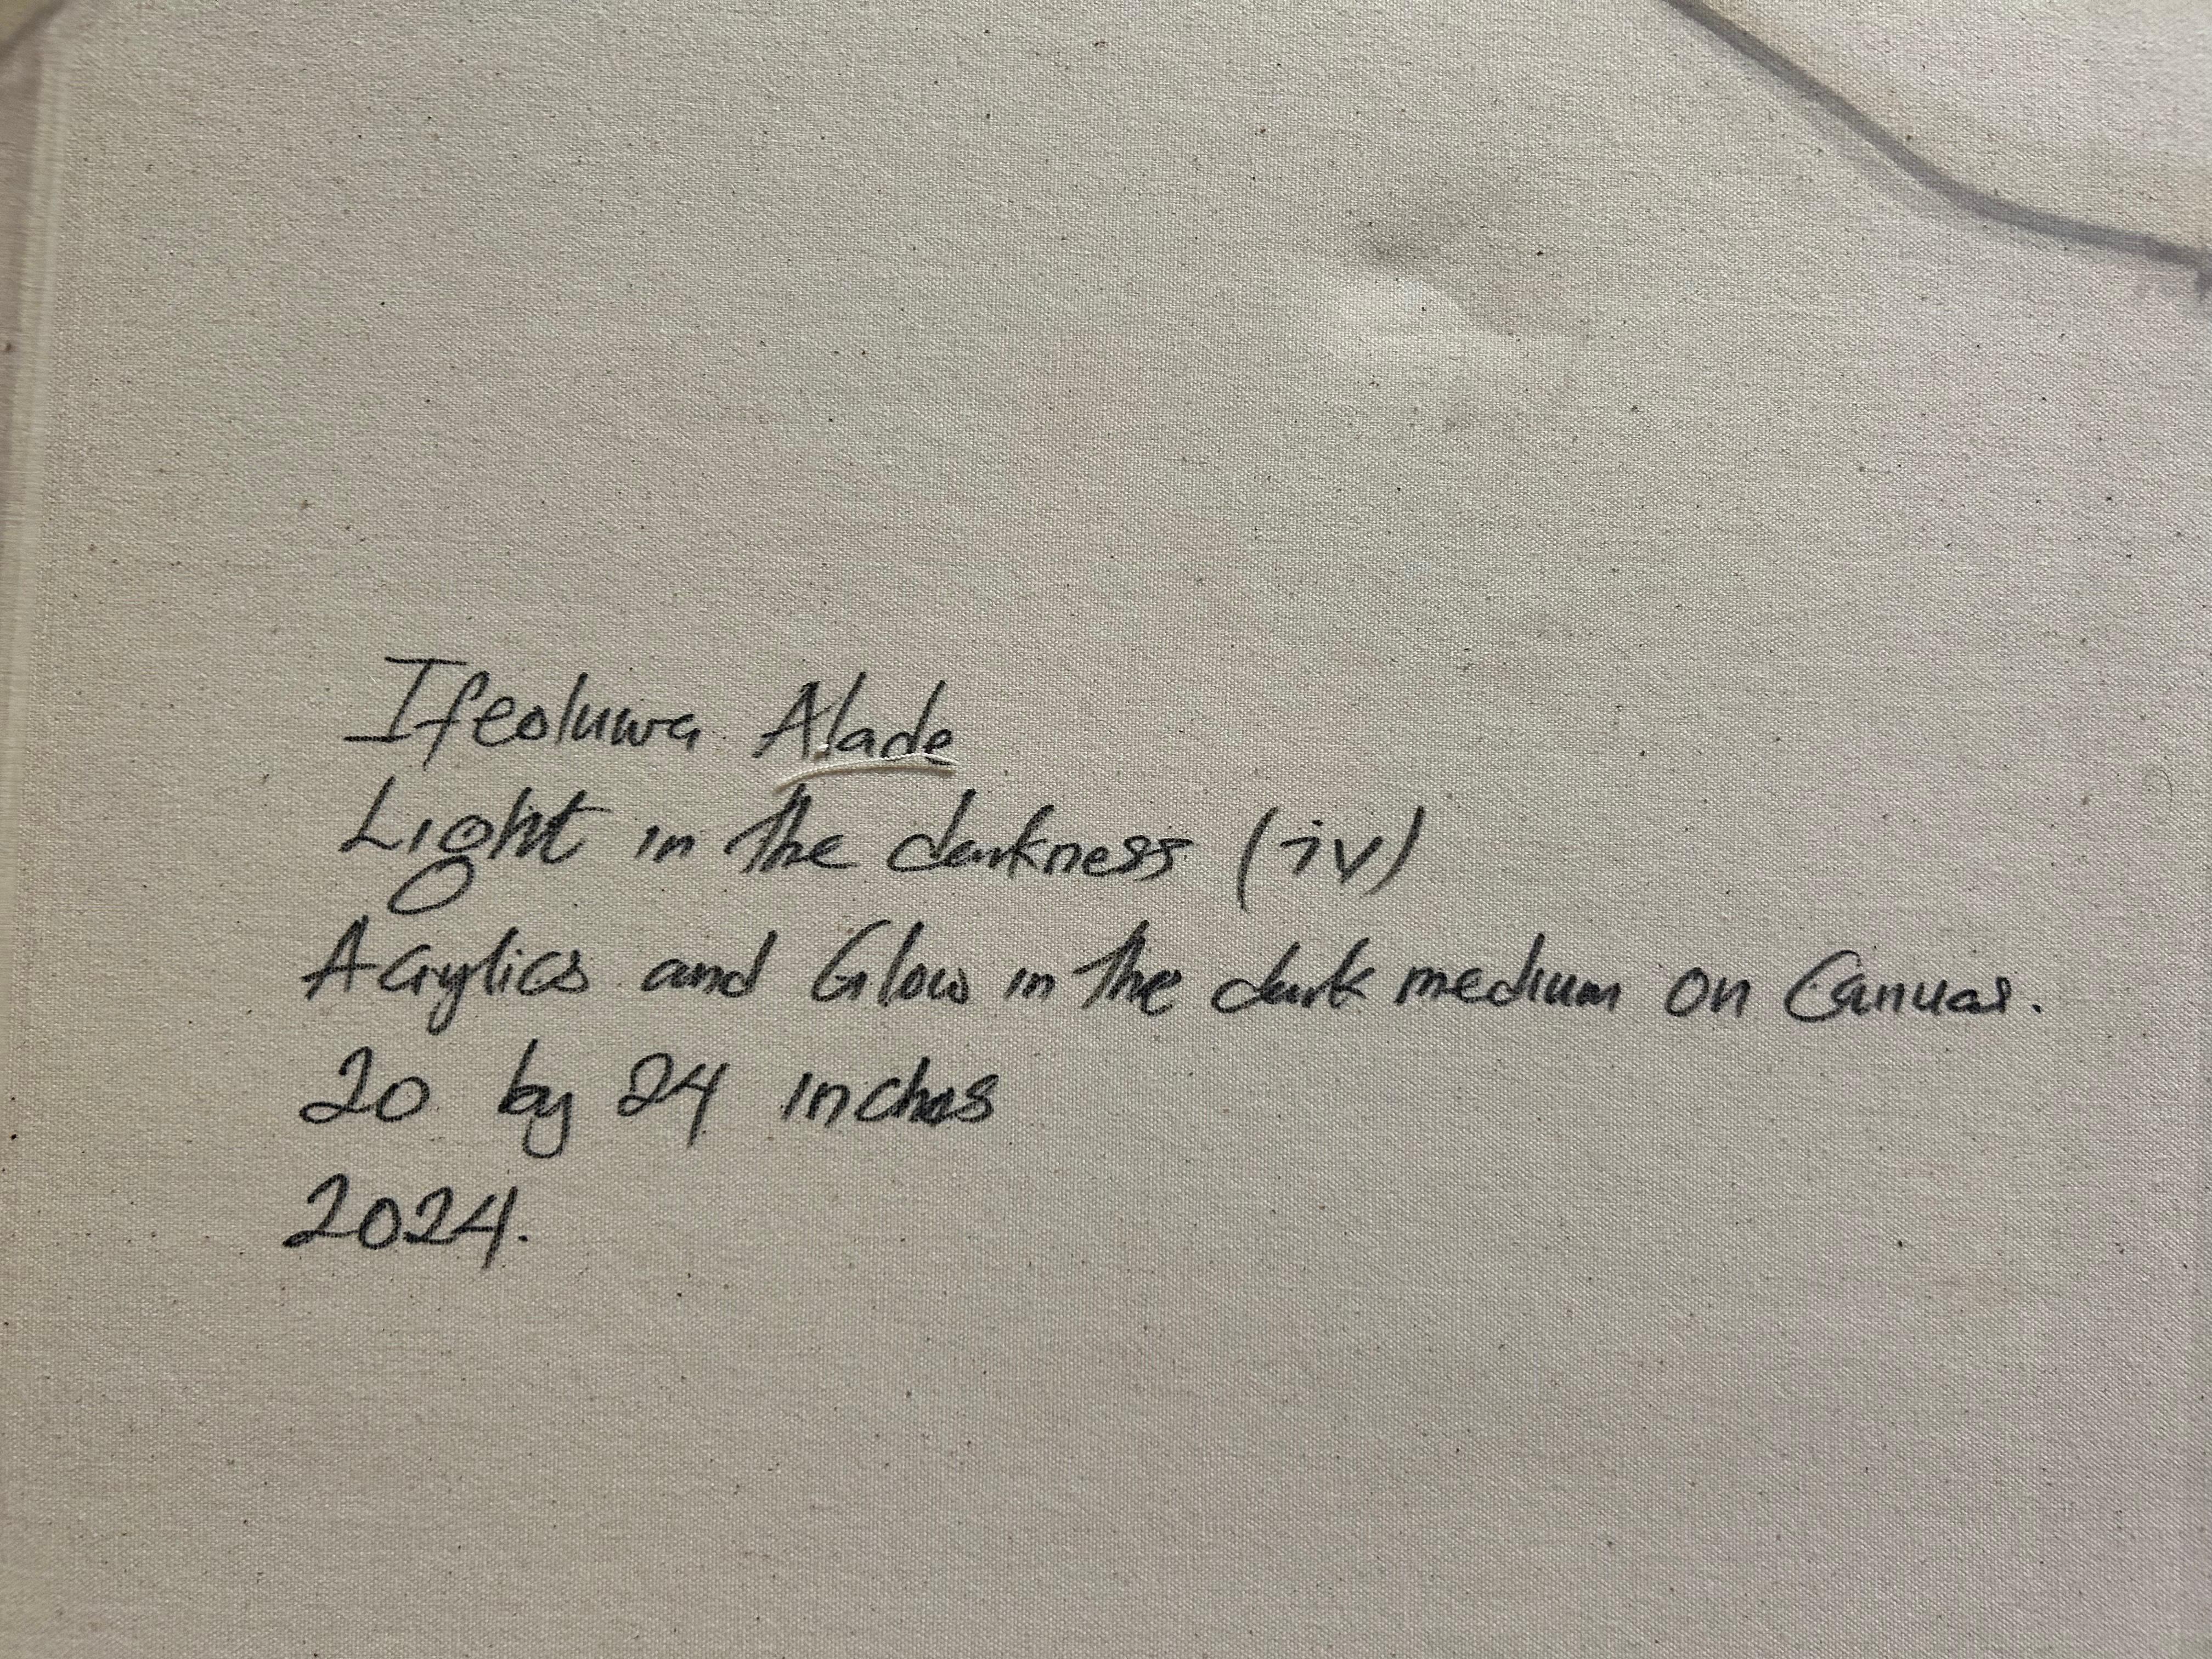 Ifeoluwa Alade
Light in the darkness (iv)
Acrylics and Glow in the dark medium on Canvas.
20 by 24 inches
2024.